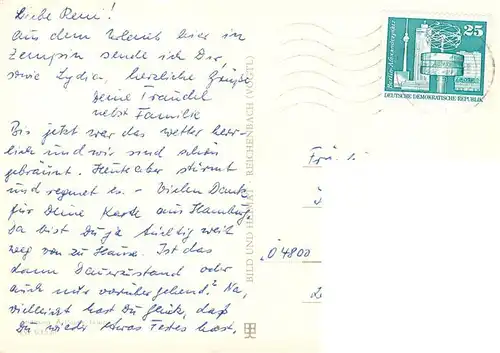 Liebe Reni!
Aus dem Urlaub hier in
Zempin sende ich Dir,
sowie Lydia, herzliche Grüße
Deine Traudel
nebst Familie
Bis jetzt war das Wetter herr-
lich und wir sind schön
gebräunt. Heute aber stürmt
und regnet es. – Vielen Dank
für Deine Karte aus Hamburg.
Da bist Du ja tüchtig weit
weg von zu Hause. Ist das
dann Dauerzustand oder
auch nur vorübergehend? Na,
vielleicht hast Du Glück, daß
Du wieder etwas Festes hast.
BILD UND HEIMAT REICHENBACH (VOGTL)
25
DEUTSCHE DEMOKRATISCHE REPUBLIK
Frä
Ö 4800